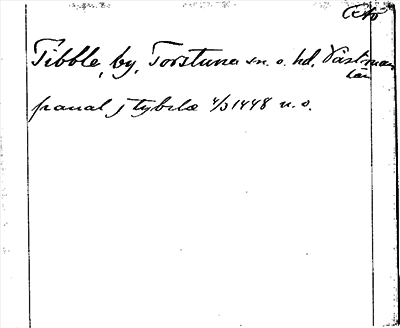 Tibble, by, Torstuna sn. o. hd, Västman
län
j tybele 4/3 1448 n. o.